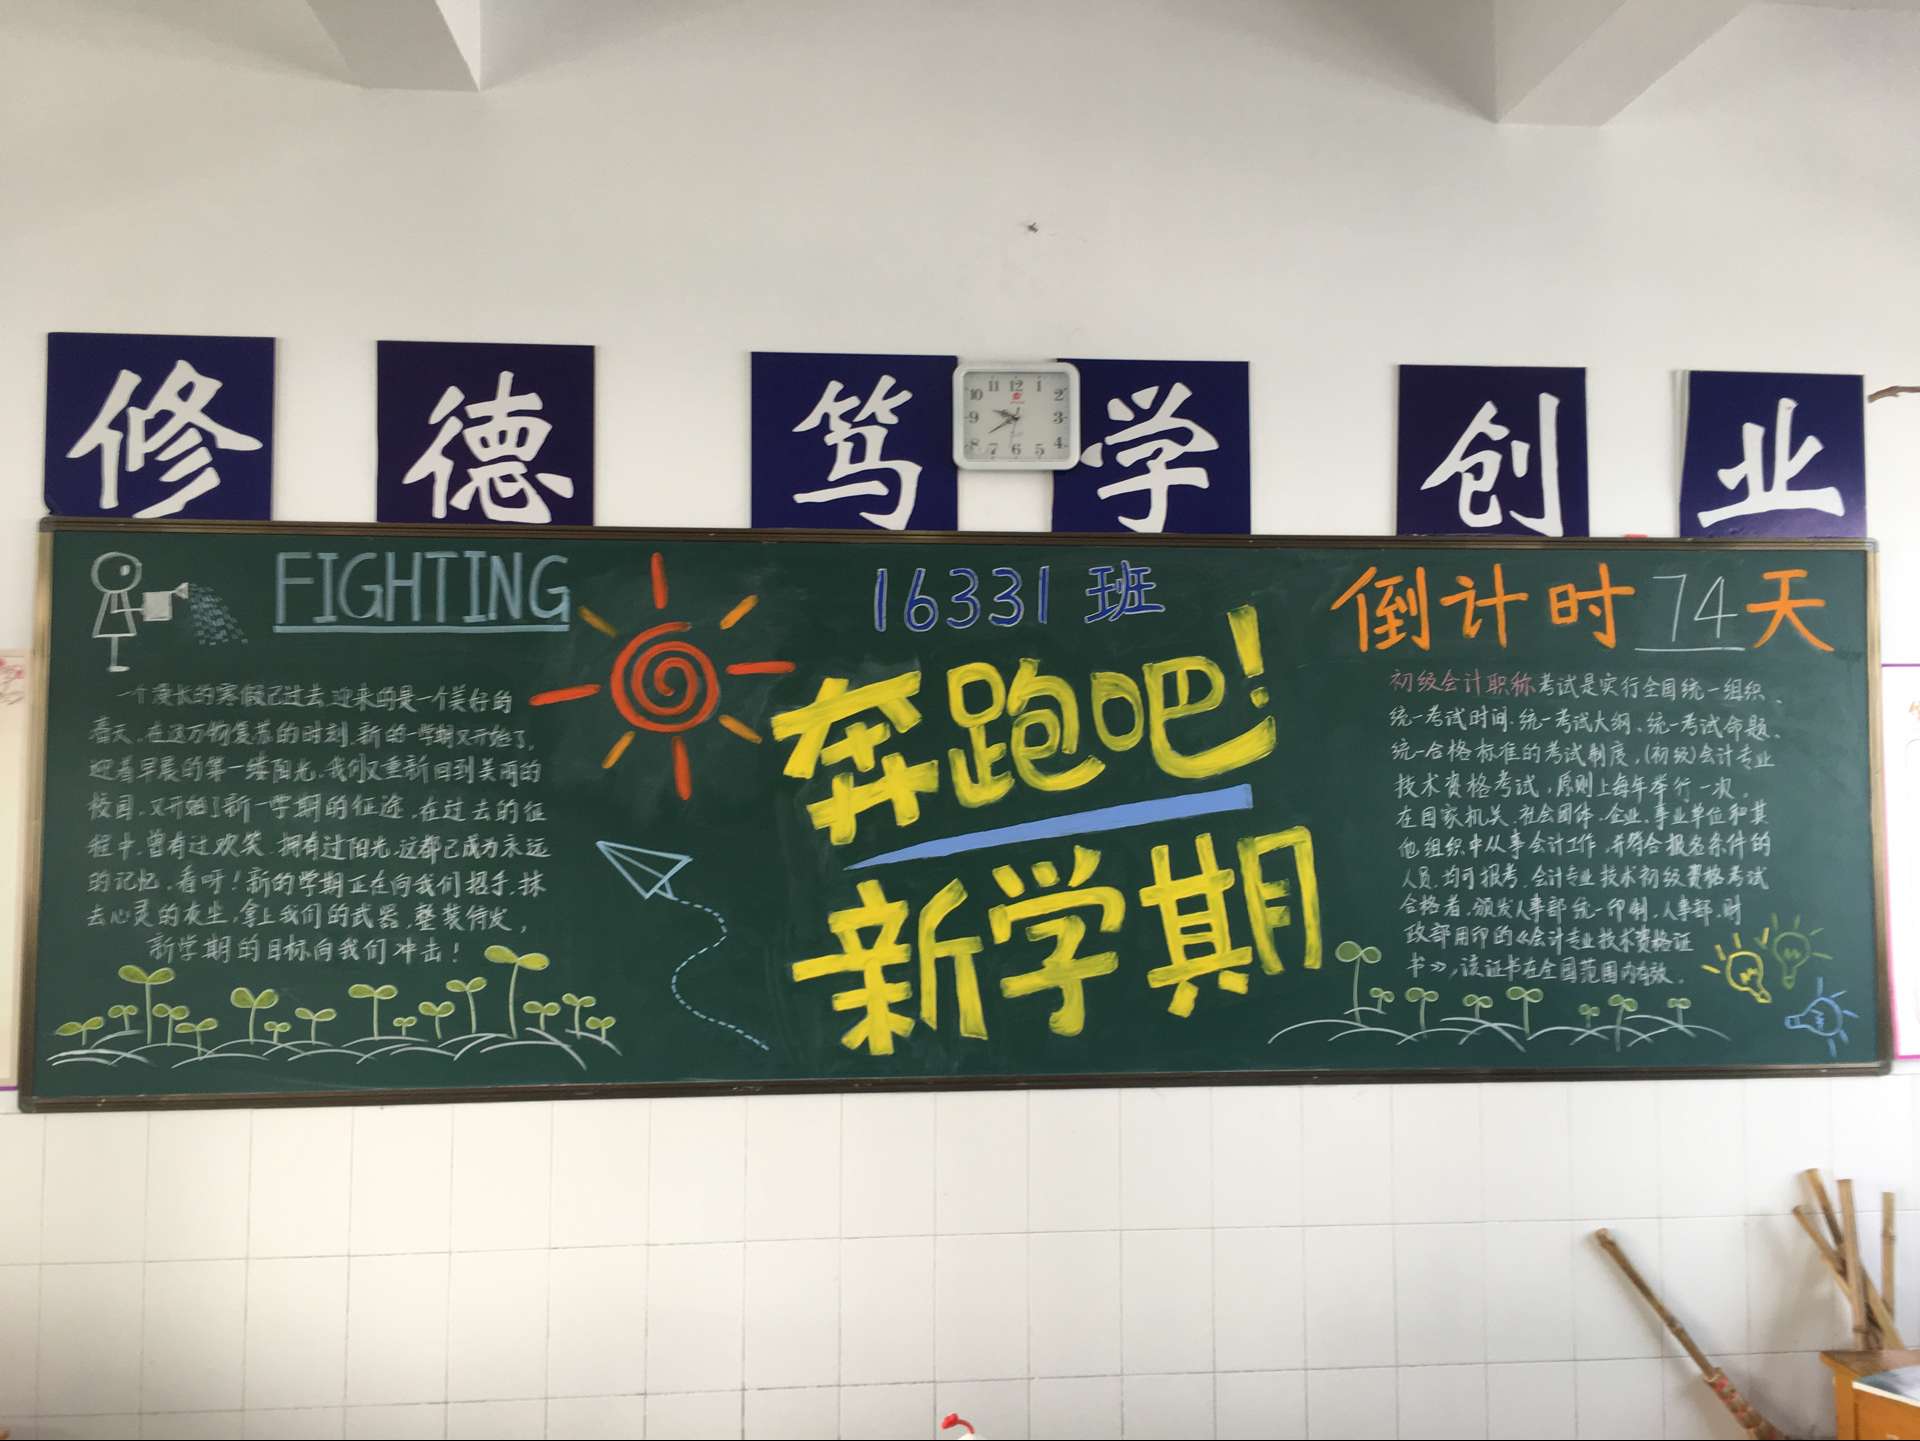 修德 笃学 创业
11 12 1
10 2
9 3
8 4
7 6 5
FIGHTING
一个漫长的寒假已过去,迎来的是一个美好的
春天,在这万物复苏的时刻,新的一学期又开始了,
迎着早晨的第一缕阳光,我们又重新回到美丽的
校园,又开始了新一学期的征途,在过去的征
程中,曾有过欢笑,拥有过阳光,这都已成为永远
的记忆,看呀!新的学期正在向我们招手,抹
去心灵的灰尘,拿上我们的武器,整装待发,
新学期的目标向我们冲击!
16331班
奔跑吧!
新学期
倒计时74天
初级会计职称考试是实行全国统一组织、
统一考试时间、统一考试大纲、统一考试命题、
统一合格标准的考试制度,(初级)会计专业
技术资格考试,原则上每年举行一次。
在国家机关、社会团体、企业、事业单位和其
他组织中从事会计工作,并符合报名条件的
人员,均可报考,会计专业技术初级资格考试
合格者,颁发人事部统一印制,人事部、财
政部用印的《会计专业技术资格证
书》,该证书在全国范围内有效。